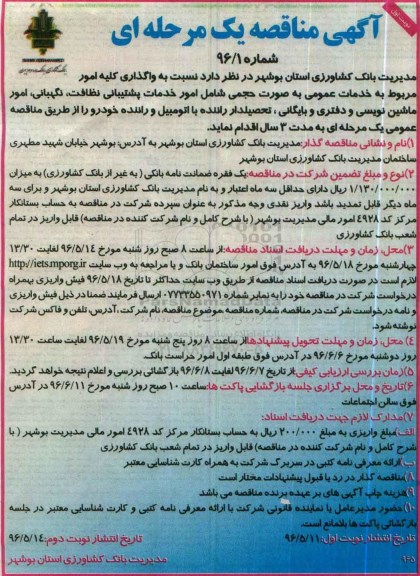 نوبت اول
آگهی مناقصه یک مرحله ای
شماره ۹۶/۱
مدیریت بانک کشاورزی استان بوشهر در نظر دارد نسبت به واگذاری کلیه امور
مربوط به خدمات عمومی به صورت حجمی شامل امور خدمات پشتیبانی نظافت، نگهبانی، امور
ماشین نویسی و دفتری و بایگانی ، تحصیلدار راننده با اتومبیل و راننده خودرو را از طریق مناقصه
عمومی یک مرحله ای به مدت ۳ سال اقدام نماید.
۱)نام و نشانی مناقصه گذار:مدیریت بانک کشاورزی استان بوشهر به آدرس: بوشهر خیابان شهید مطهری
ساختمان مدیریت بانک کشاورزی استان بوشهر
۲)نوع و مبلغ تضمین شرکت در مناقصه:یک فقره ضمانت نامه بانکی ( به غیر از بانک کشاورزی) به میزان
۱/۱۳۰/۰۰۰/۰۰۰ ریال دارای حداقل سه ماه اعتبار و به نام مدیریت بانک کشاورزی استان بوشهر و برای سه
ماه دیگر قابل تمدید باشد واریز نقدی وجه مذکور به عنوان سپرده شرکت در مناقصه به حساب بستانکار
مرکز کد ۴۹۲۸ امور مالی مدیریت بوشهر ( با شرح کامل و نام شرکت کننده در مناقصه) قابل واریز در تمام
شعب بانک کشاورزی
۳)محل، زمان و مهلت دریافت اسناد مناقصه:از ساعت ۸ صبح روز شنبه مورخ ۹۶/۵/۱۴ لغایت ۱۳/۳۰
چهارشنبه مورخ ۹۶/۵/۱۸ به آدرس فوق امور ساختمان بانک و یا مراجعه به وب سایت http://iets.mporg.ir
لازم است در صورت دریافت اسناد مناقصه از طریق وب سایت حداکثر تا تاریخ ۹۶/۵/۱۸ فیش واریزی بهمراه
درخواست شرکت در مناقصه خود را به نمابر شماره ۰۷۷۳۳۵۵۰۹۷۱ ارسال فرمایند ضمنا در ذیل فیش واریزی
و نامه درخواست شرکت در مناقصه، شماره مناقصه ،موضوع مناقصه، نام شرکت ،آدرس، تلفن و فاکس شرکت
نوشته شود.
۴) محل، زمان و مهلت تحویل پیشنهادها:از ساعت ۸ روز پنج شنبه مورخ ۹۶/۵/۱۹ لغایت ساعت ۱۳/۳۰
روز دوشنبه مورخ ۹۶/۶/۶ در آدرس فوق طبقه اول امور حراست بانک.
۵)زمان بررسی ارزیابی کیفی:از تاریخ ۹۶/۶/۷ لغایت ۹۶/۶/۸ بازگشائی بررسی و اعلام نتیجه خواهد گردید.
۶)تاریخ و محل برگزاری جلسه بازگشایی پاکت ها:ساعت ۱۰ صبح روز شنبه مورخ ۹۶/۶/۱۱ در آدرس
فوق سالن اجتماعات
۷)مدارک لازم جهت دریافت اسناد:
الف)مبلغ واریزی به مبلغ ۲۰۰/۰۰۰ ریال به حساب بستانکار مرکز کد ۴۹۲۸ امور مالی مدیریت بوشهر ( با
شرح کامل و نام شرکت کننده در مناقصه) قابل واریز در تمام شعب بانک کشاورزی
ب)ارائه معرفی نامه کتبی در سربرگ شرکت به همراه کارت شناسایی معتبر
۸)مناقصه گذار در رد یا قبول پیشنهادات مختار است
۹)هزینه چاپ آگهی های بر عهده برنده مناقصه می باشد
۱۰)حضور مدیرعامل یا نماینده قانونی شرکت با ارائه معرفی نامه کتبی و کارت شناسایی معتبر در جلسه
بازگشائی پاکت ها بلامانع است.
تاریخ انتشار نوبت اول: ۹۶/۵/۱۱ تاریخ انتشار نوبت دوم: ۹۶/۵/۱۴
۹۶۵ مدیریت بانک کشاورزی استان بوشهر